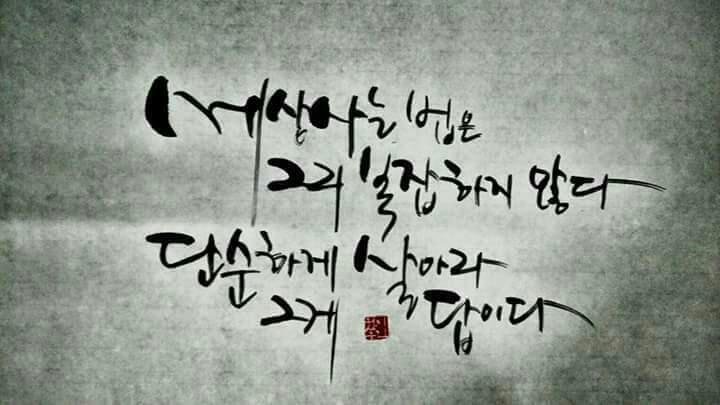 세상사는 법은
그리 복잡하지 않다
단순하게 살아라
그게 답이다